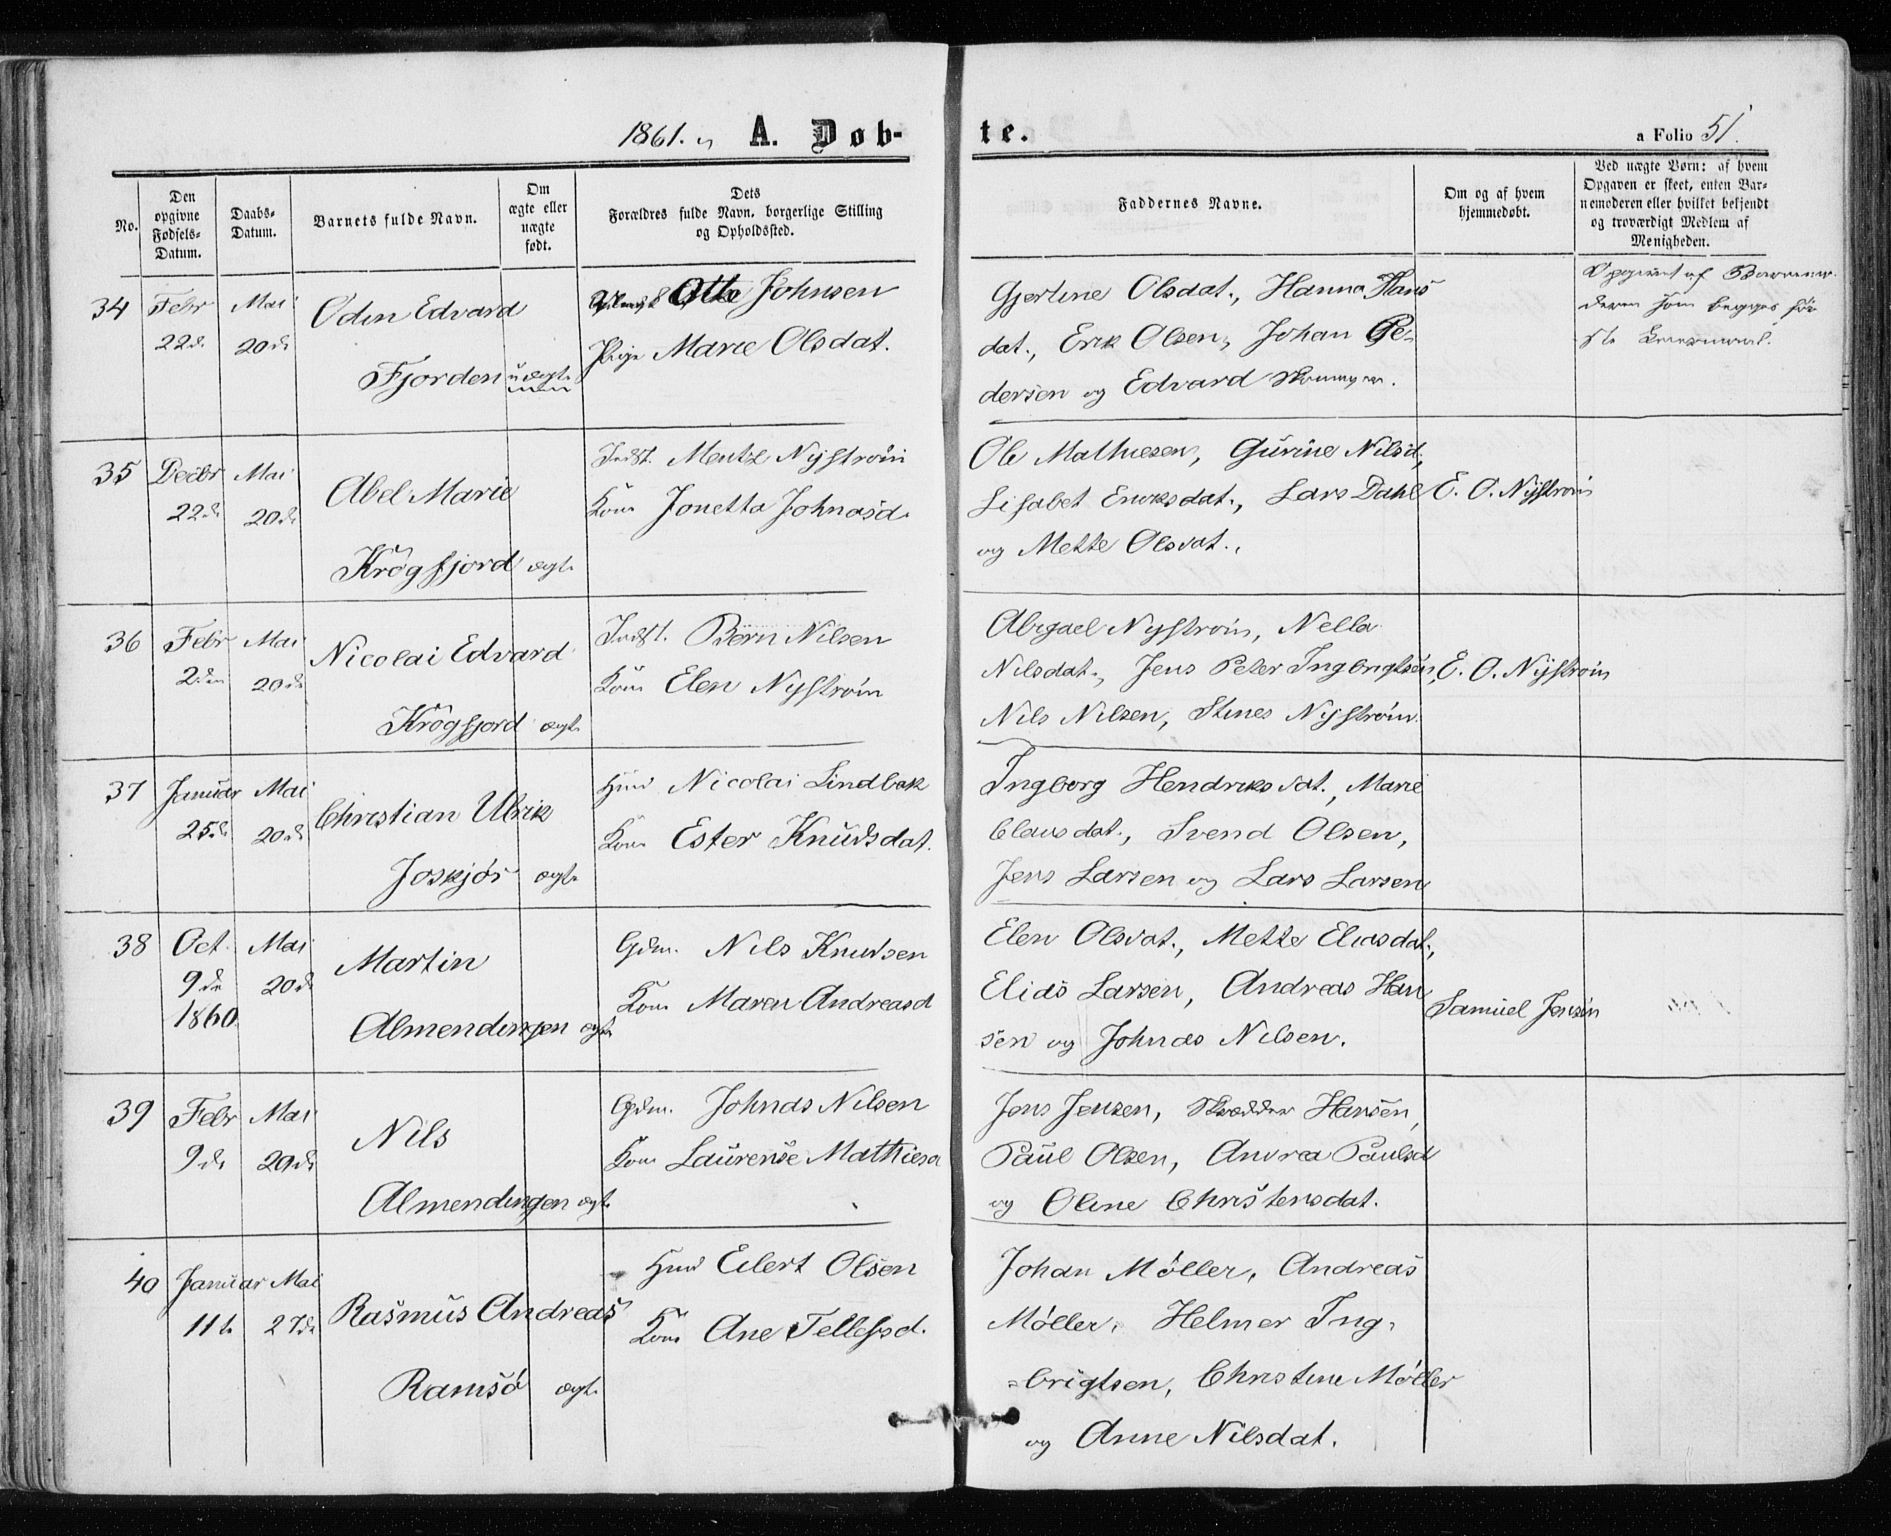 1861. A. Døb-
te.
a Folio 51.
No.
Den opgivne Fødsels-Datum.
Daabs-Datum.
Barnets fulde Navn.
Om ægte eller uægte født.
Dets Forældres fulde Navn, borgerlige Stilling og Opholdssted.
Faddernes Navne.
Om og af hvem hjemmedøbt.
Ved uægte Børn: af hvem Opgaven er skeet, enten Barnemoderen eller hvilket bekjendt og troværdigt Medlem af Menigheden.
34 Febr Mai
22d. 20de
Odin Edvard
Fjorden uægte
Otto Johnsen
Pige Marie Olsdat.
Gjertine Olsdat., Hanna Hans
dat., Erik Olsen, Johan Pe-
dersen og Edvard
Opgivet af Barnemo-
deren som begges för-
ste Leiermaal.
35 Decbr Mai
22de 20de
Abel Marie
Krögfjord ægte
Indst. Mentz Nyström
Kone Jonetta Johnasd.
Ole Mathiesen, Gurine Nilsd,
Lisabet Eriksdat., Lars Dahl
og Mette Olsdat.,
E. O. Nyström
36 Febr Mai
2den 20de
Nicolai Edvard
Krögfjord ægte
Indst. Börn Nilsen
Kone Elen Nyström
Abigael Nyström, Nella
Nilsdat., Jens Peter Ingbrigtsen,
Nils Nilsen, Stines Nyström.
E. O. Nyström
37 Januar Mai
25de 20de
Christian Ulrik
Joskjør ægte
Huus Nicolai Lindbak
Kone Ester Knudsdat.
Ingborg Hendriksdat., Marie
Clausdat., Svend Olsen,
Jens Larsen og Lars Larsen
38 Oct. Mai
9de 20de
1860
Martin
Almendingen ægte
Gdm. Nils Knudsen
Kone Maren Andreasd
Elen Olsdat., Mette Eliasdat.,
Elias Larsen, Andreas Han
sen og Johnas Nilsen.
Samuel Jensen
39 Febr Mai
9de 20de
Nils
Almendingen ægte
Gdm. Johnas Nilsen
Kone Laurense Mathiesd
Jens Jensen, Skrædder Hansen,
Paul Olsen, Andrea Paulsd
og Oline Christensdat.
40 Januar Mai
11te 27de
Rasmus Andreas
Ramsö ægte
Huus Eilert Olsen
Kone Ane Tellefsd.
Johan Møller, Andreas
Møller, Helmer Ing-
brigtsen, Christine Møller
og Anne Nilsdat.